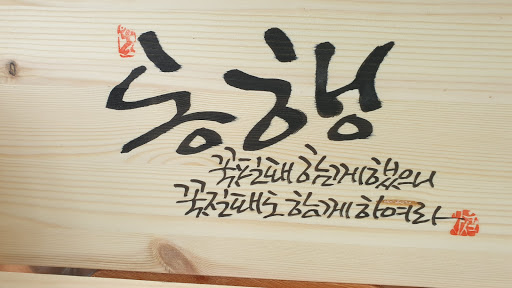 동행
꽃필때 함께했으니
꽃질때도 함께하여라